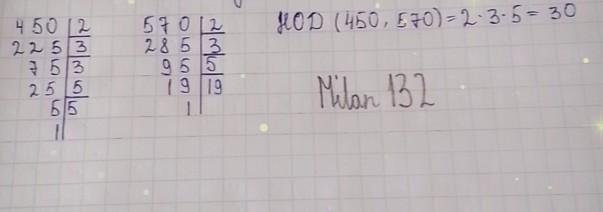 450|2 570|2 НОД (450, 570) = 2·3·5 = 30
225|3 285|3
75|3 95|5
25|5 19|19
5|5 1|
1|
Milan 132